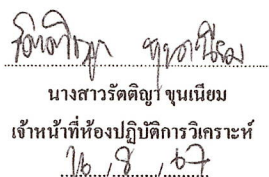 รัตติญา ขุนเนียม
นางสาวรัตติญา ขุนเนียม
เจ้าหน้าที่ห้องปฏิบัติการวิเคราะห์
/ 8 / 67